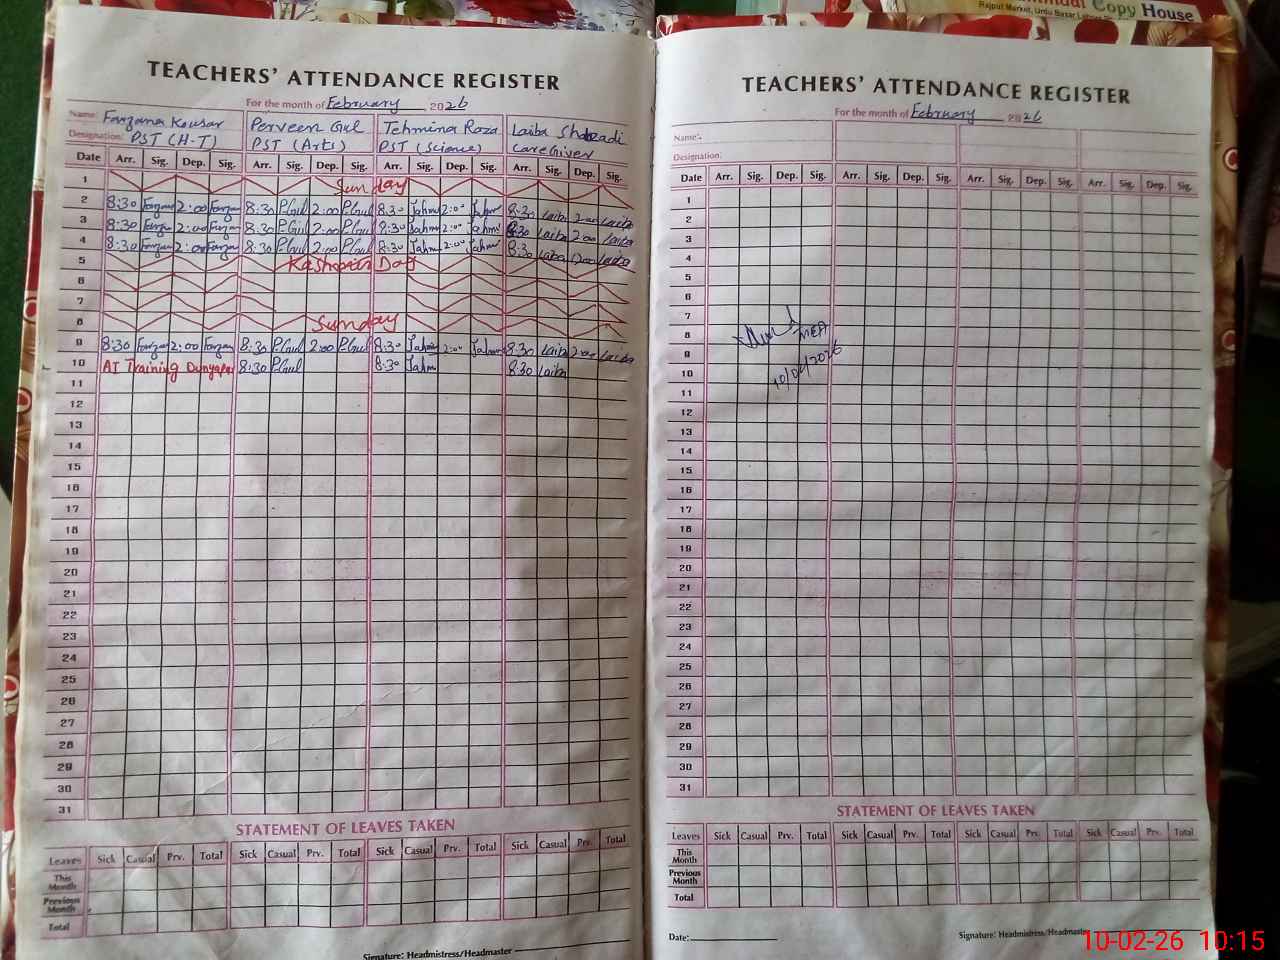 Copy House
Rajput Market, Urdu Bazar Lahore
TEACHERS' ATTENDANCE REGISTER
For the month of February 2026
Name: Farzana Kousar Perveen Gul Tehmina Raza Laiba Shahzadi
Designation: PST (H-T) PST (Arts) PST (Science) CareGiver
Date Arr. Sig. Dep. Sig. Arr. Sig. Dep. Sig. Arr. Sig. Dep. Sig. Arr. Sig. Dep. Sig.
1 Sunday
2 8:30 Farzan 2:00 Farzan 8:30 P.Gul 2:00 P.Gul 8:30 Tahm 2:00 Tahm 8:30 Laiba 2:00 Laiba
3 8:30 Farzan 2:00 Farzan 8:30 P.Gul 2:00 P.Gul 8:30 Tahm 2:00 Tahm 8:30 Laiba 2:00 Laiba
4 8:30 Farzan 2:00 Farzan 8:30 P.Gul 2:00 P.Gul 8:30 Tahm 2:00 Tahm 8:30 Laiba 2:00 Laiba
5 Kashmir Day
6
7
8 Sunday
9 8:30 Farzan 2:00 Farzan 8:30 P.Gul 2:00 P.Gul 8:30 Tahm 2:00 Tahm 8:30 Laiba 2:00 Laiba
10 AI Training Dunyapur 8:30 P.Gul 8:30 Tahm 8:30 Laiba
11
12
13
14
15
16
17
18
19
20
21
22
23
24
25
26
27
28
29
30
31
STATEMENT OF LEAVES TAKEN
Leaves Sick Casual Prv. Total Sick Casual Prv. Total Sick Casual Prv. Total Sick Casual Prv. Total
This Month
Previous Month
Total
Signature: Headmistress/Headmaster
TEACHERS' ATTENDANCE REGISTER
For the month of February 2026
Name:
Designation:
Date Arr. Sig. Dep. Sig. Arr. Sig. Dep. Sig. Arr. Sig. Dep. Sig. Arr. Sig. Dep. Sig.
1
2
3
4
5
6
7
8 MEA
9
10 10/02/2026
11
12
13
14
15
16
17
18
19
20
21
22
23
24
25
26
27
28
29
30
31
STATEMENT OF LEAVES TAKEN
Leaves Sick Casual Prv. Total Sick Casual Prv. Total Sick Casual Prv. Total Sick Casual Prv. Total
This Month
Previous Month
Total
Date: Signature: Headmistress/Headmaster
10-02-26 10:15